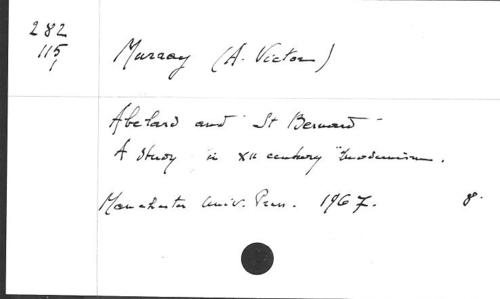 282
115
1
Murray (A. Victor)
Abelard and St Bernard
A study in XII century "modernism.
Manchester Univ. Press. 1967. 8.